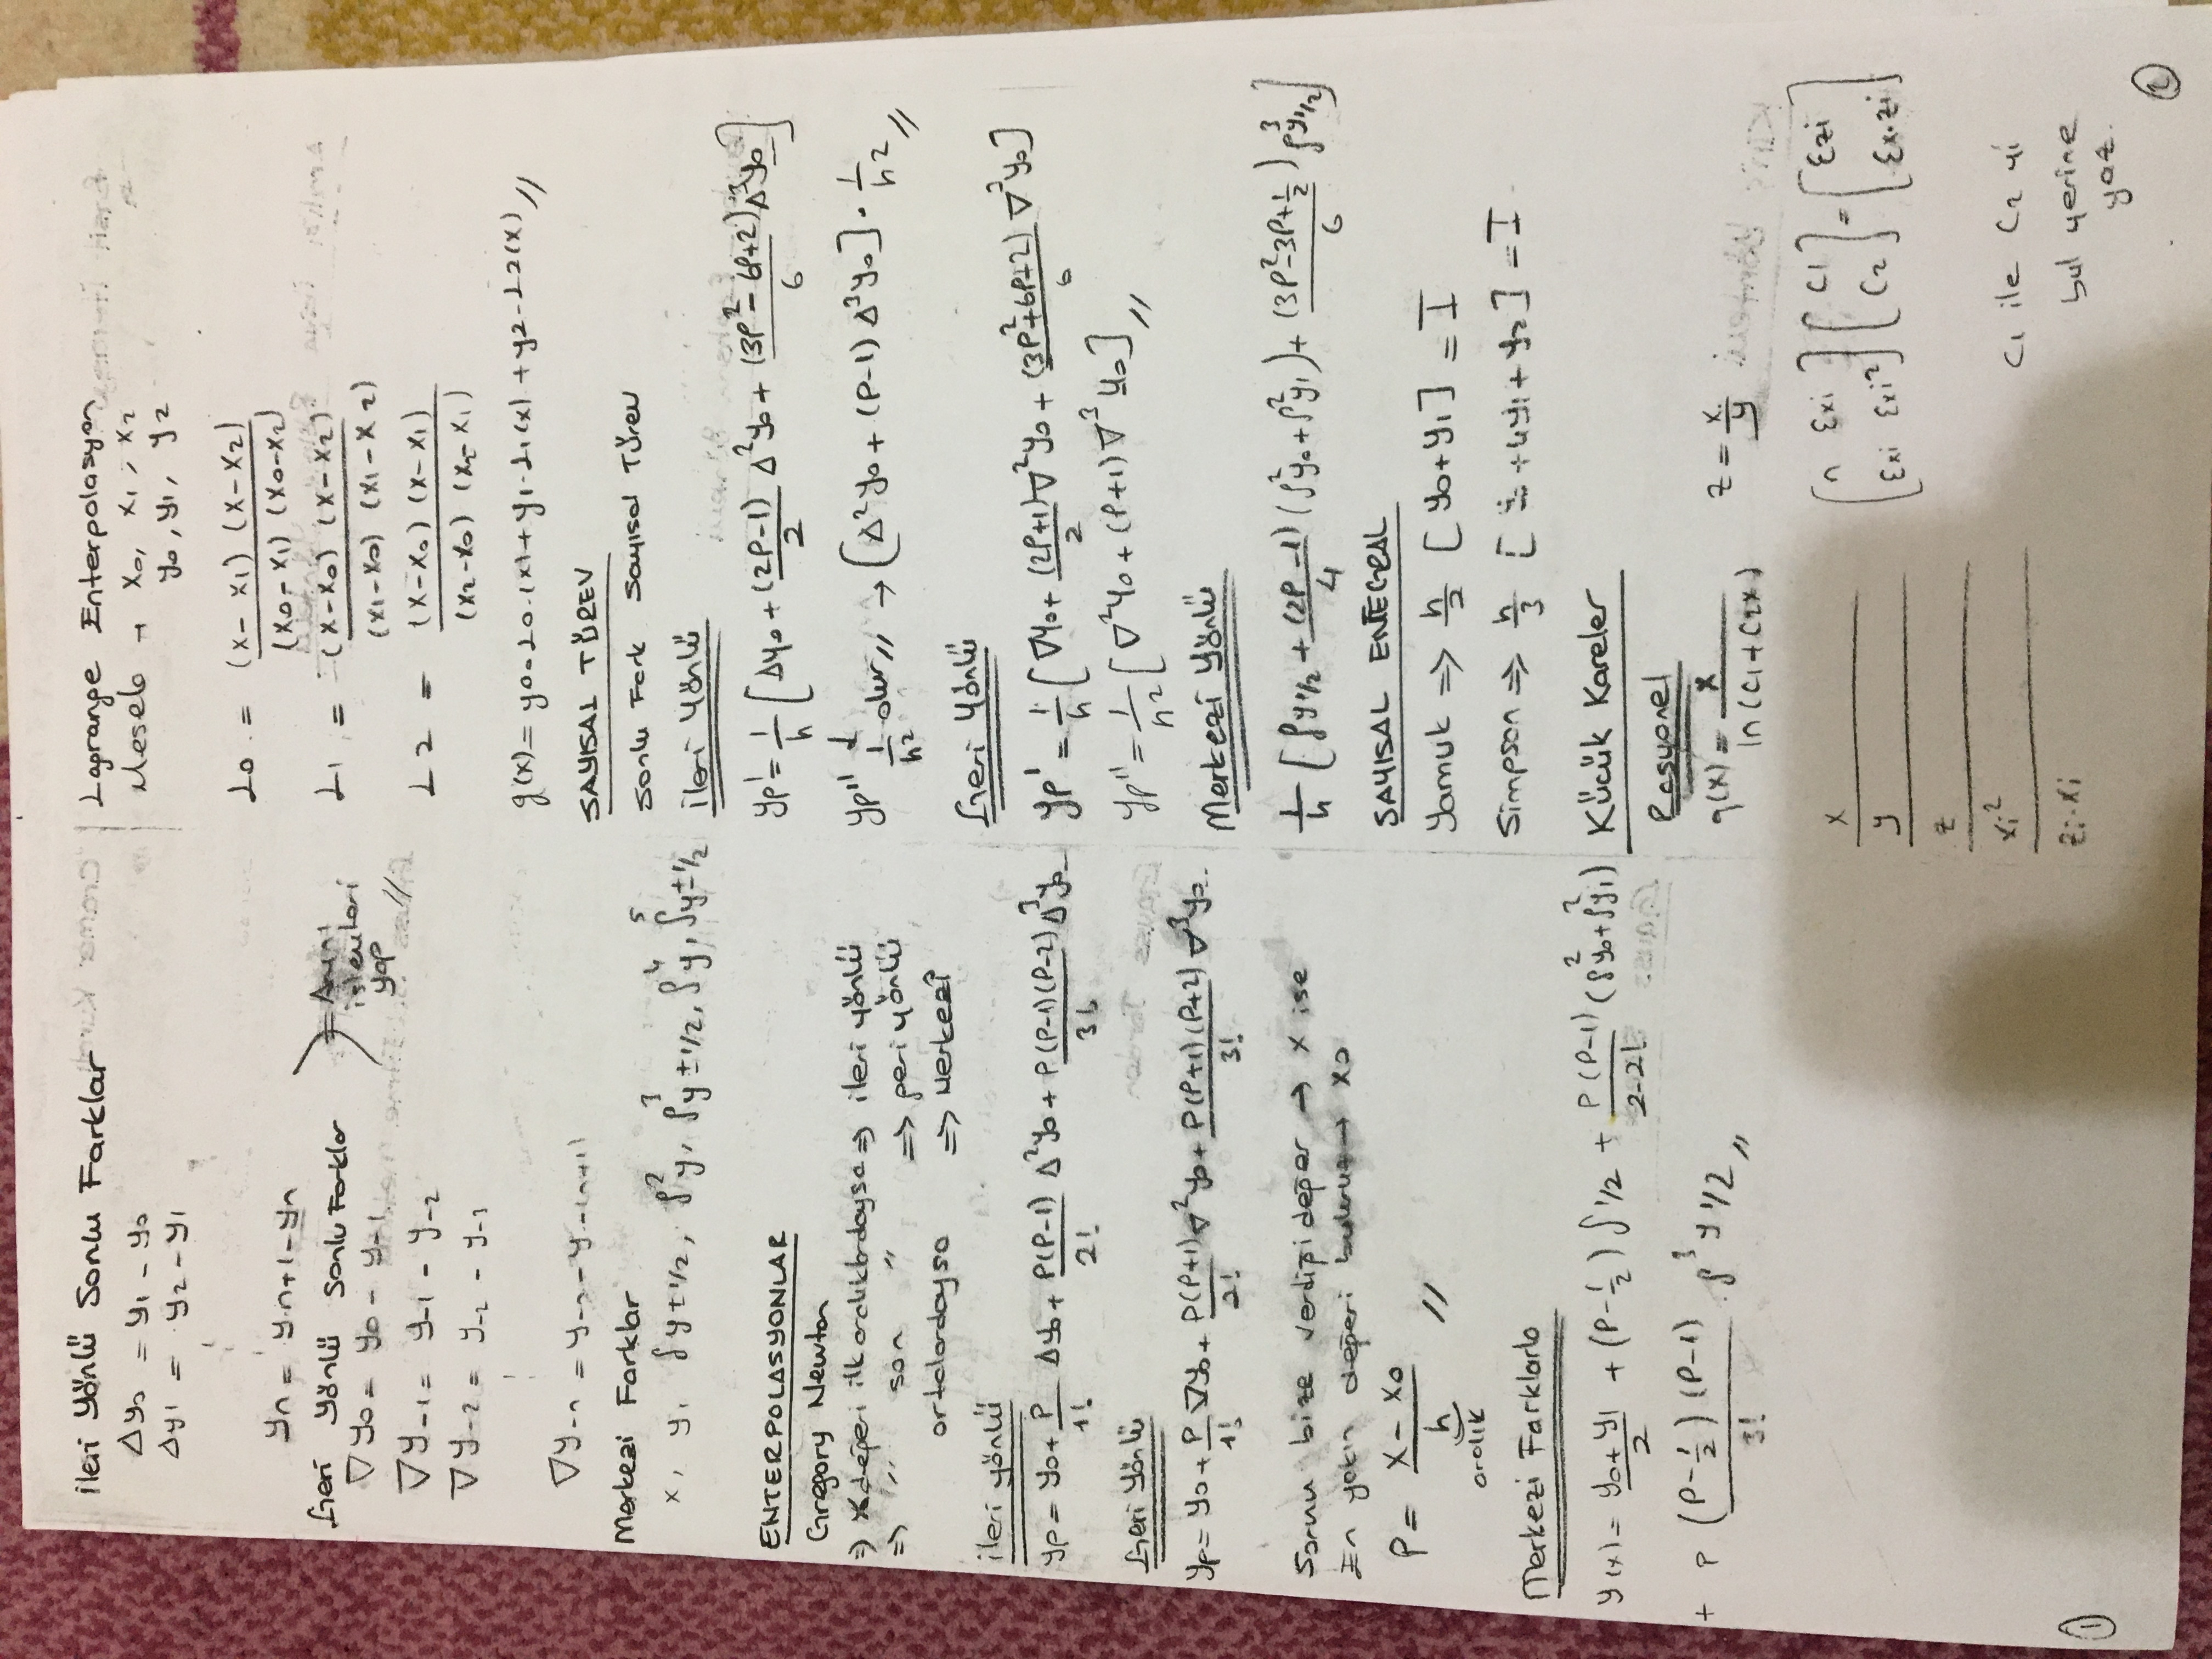 ileri Yönlü Sonlu Farklar
Δy0 = y1 - y0
Δy1 = y2 - y1
yn = yn+1 - yn
Geri Yönlü Sonlu Farklar
∇y0 = y0 - y-1
∇y-1 = y-1 - y-2
∇y-2 = y-2 - y-3
∇y-n = y-n - y-(n+1)
= Aynı
işlemleri
yap //
Merkezi Farklar
x, y, δy±1/2, δ²y, δ³y±1/2, δ⁴y, δ⁵y±1/2
ENTERPOLASYONLAR
Gregory Newton
=> x değeri ilk aralıklardaysa => ileri yönlü
=> " son " => geri yönlü
ortalardaysa => Merkezî
ileri yönlü
yp = y0 + P/1! Δy0 + P(P-1)/2! Δ²y0 + P(P-1)(P-2)/3! Δ³y0
Geri Yönlü
yp = y0 + P/1! ∇y0 + P(P+1)/2! ∇²y0 + P(P+1)(P+2)/3! ∇³y0
Sorunu bize verdiği değer → x ise
En yakın değeri buluruz → x0
P = x - x0 / h //
aralık
Merkezi Farklarla
y(x) = y0+y1/2 + (P-1/2) δ1/2 + P(P-1)/2-2! (δ²y0+δ²y1)
+ P (P-1/2)(P-1)/3! . δ³y1/2 //
1
Lagrange Enterpolasyon
Mesela → x0, x1, x2
y0, y1, y2
L0 = (x-x1)(x-x2) / (x0-x1)(x0-x2)
L1 = (x-x0)(x-x2) / (x1-x0)(x1-x2)
L2 = (x-x0)(x-x1) / (x2-x0)(x2-x1)
g(x) = y0.L0.(x) + y1.L1(x) + y2-L2(x) //
SAYISAL TÜREV
Sonlu Fark Sayısal Türev
ileri Yönlü
yp' = 1/h [Δy0 + (2P-1)/2 Δ²y0 + (3P²-6P+2)/6 Δ³y0]
yp'' ↓ 1/h² olur // → [Δ²y0 + (P-1) Δ³y0] . 1/h² //
Geri Yönlü
yp' = 1/h [∇y0 + (2P+1)/2 ∇²y0 + (3P²+6P+2)/6 ∇³y0]
yp'' = 1/h² [∇²y0 + (P+1) ∇³y0] //
Merkezi Yönlü
1/h [δy1/2 + (2P-1)/4 (δ²y0+δ²y1) + (3P²-3P+1/2)/6 δ³y1/2]
SAYISAL ENTEGRAL
Yamuk => h/2 [y0+y1] = I
Simpson => h/3 [ +4y1+y2] = I
Kücük Kareler
Rasyonel
g(x) = x / ln(c1+c2x) z = x/y
x
y
z
xi²
zi.xi
[n Σxi] [c1] = [Σzi]
[Σxi Σxi²] [c2] [Σx.zi]
C1 ile C2 yi
bul yerine
yaz.
2